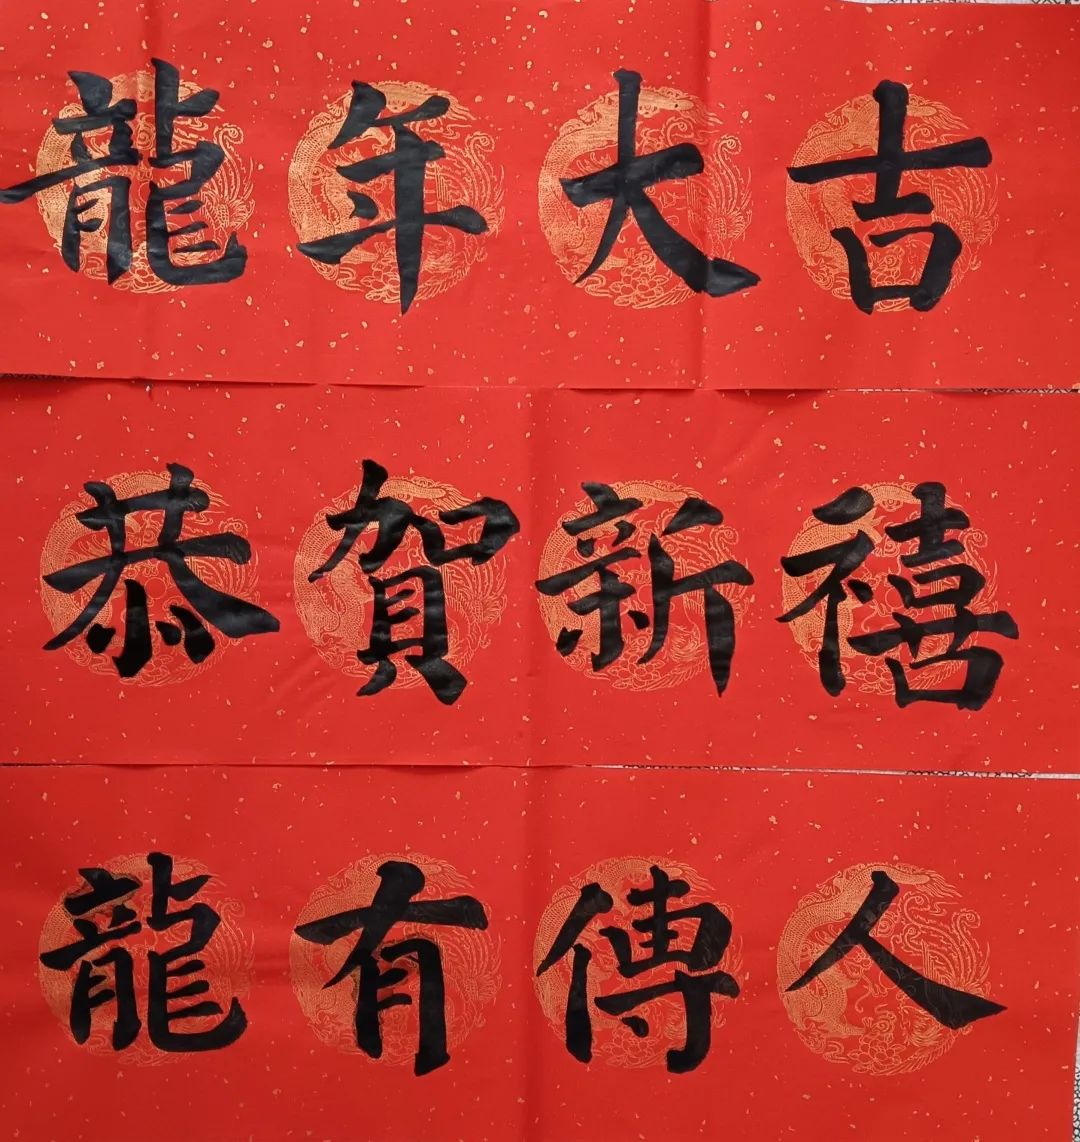 龍年大吉
恭賀新禧
龍有傳人